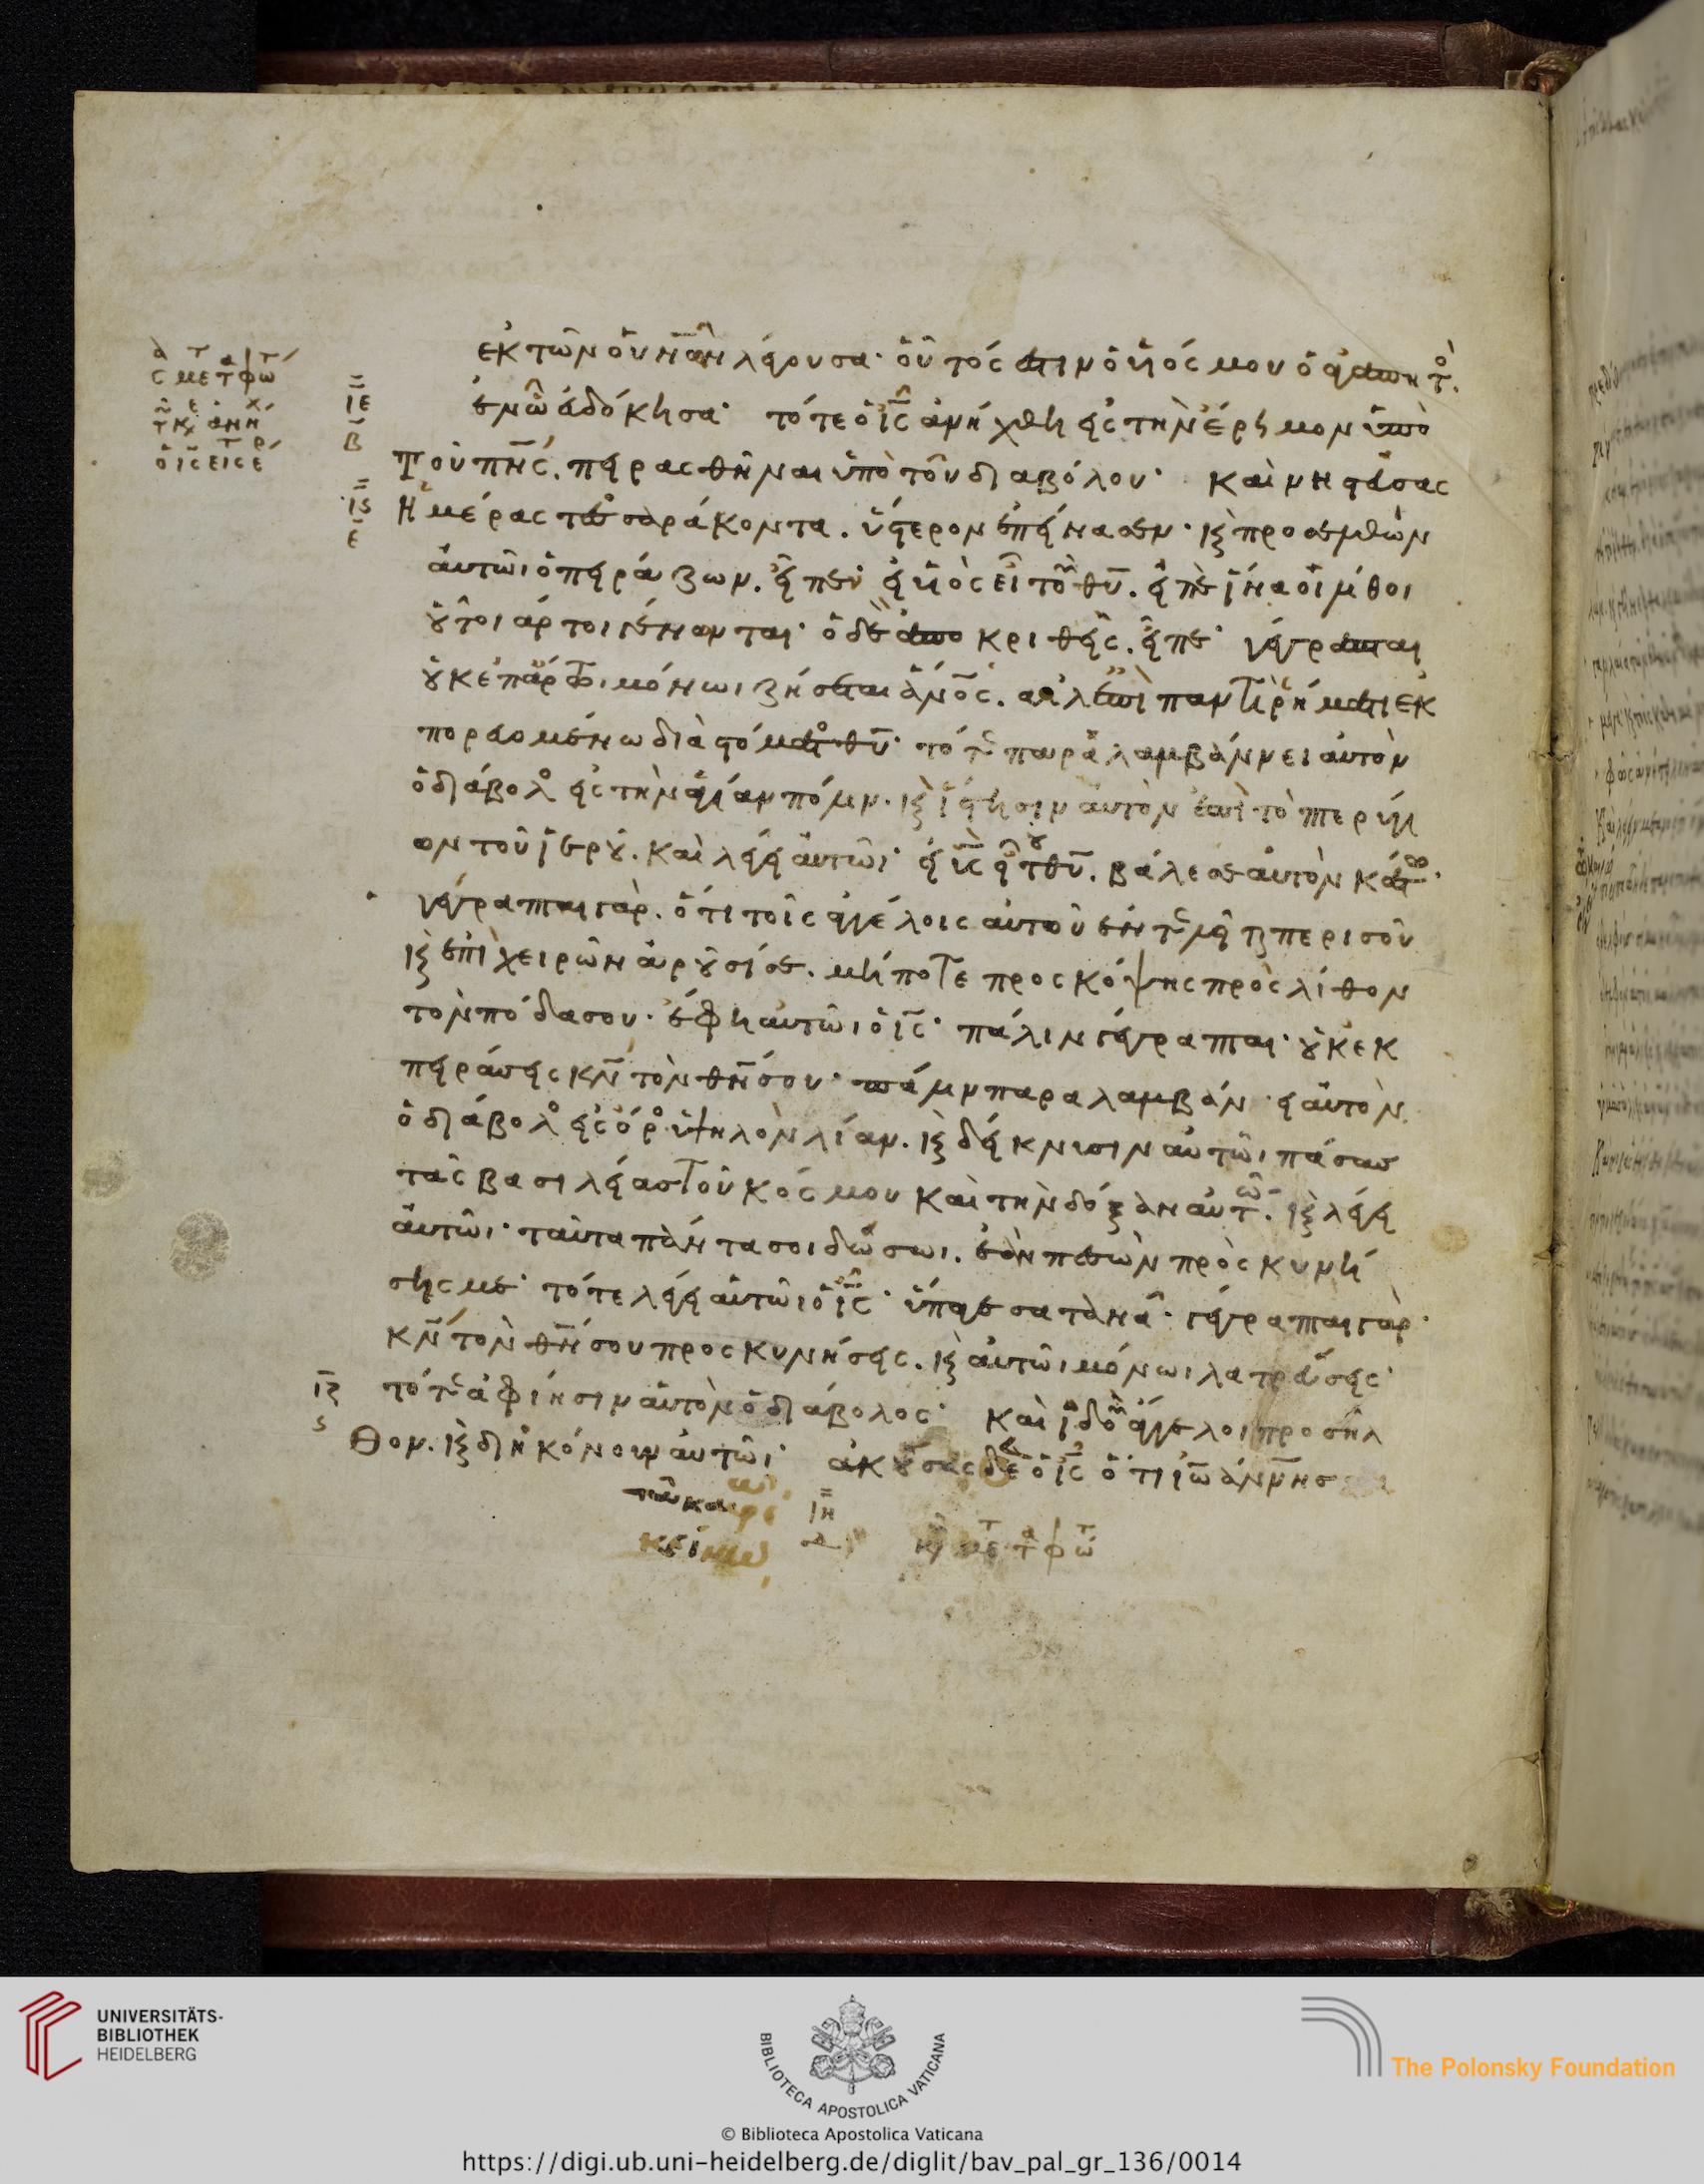 ἐκ τῶν οὐνῶν λέγουσα· οὗτός ἐστιν ὁ υἱός μου ὁ ἀγαπητο.
ἐν ὧ εὐδόκησα· τότε ὁ ις ἀνήχθη εἰς τὴν ἔρημον ὑπὸ
ιε
β
τοῦ πνς. πειρασθῆναι ὑπὸ τοῦ διαβόλου· καὶ νηστεύσας
ις
ε
ἡμέρας τεσσαράκοντα. ὕστερον ἐπείνασεν· κ προσελθὼν
αὐτῶι ὁ πειράζων. εἶπεν εἰ υἱὸς εἶ τοῦ θυ. εἰπὲ ἵνα οἱ λίθοι
οὗτοι ἄρτοι γένωνται· ὁ δὲ ἀποκριθεὶς. εἶπε· γέγραπται
οὐκ ἐπ ἄρτωι μόνωι ζήσεται ἀνος. ἀλλ ἐπὶ παντὶ ῥήματι ἐκ
πορευομένω διὰ στόματο θυ· τότε παραλαμβάννει αὐτὸν
ὁ διάβολο εἰς τὴν ἁγίαν πόλιν. κ ἵστησιν αὐτὸν ἐπὶ τὸ πτερύγι
ον τοῦ ἱεροῦ. καὶ λέγει αὐτῶι· εἰ υις εἶ τοῦ θυ. βάλε σεαυτὸν κάτω·
γέγραπται γὰρ. ὅτι τοῖς ἀγγέλοις αὐτοῦ ἐντελεῖται περὶ σοῦ
κ ἐπὶ χειρῶν ἀροῦσί σε. μήποτε προσκόψης πρὸς λίθον
τὸν πόδα σου· ἔφη αὐτῶι ὁ ις· πάλιν γέγραπται· οὐκ ἐκ
πειράσεις κν τὸν θν σου· πάλιν παραλαμβάνει αὐτὸν
ὁ διάβολο εἰς ὄρο ὑψηλὸν λίαν. κ δείκνυσιν αὐτῶι πάσας
τὰς βασιλείας τοῦ κόσμου καὶ τὴν δόξαν αὐτω. κ λέγει
αὐτῶι· ταῦτα πάντα σοι δώσωι. ἐὰν πεσὼν πρὸσκυνή
σης με· τότε λέγει αὐτῶι ὁ ις· ὕπαγε σατανᾶ· γέγραπται γὰρ·
κν τὸν θν σου προσκυνήσεις. κ αὐτῶι μόνωι λατρεύσεις·
ιζ
ς
τότε ἀφίησιν αὐτὸν ὁ διάβολος· καὶ ἰδοῦ ἄγγελοι προσῆλ
θον. κ διηκόνουν αὐτῶι· ἀκούσας δὲ ὁ ις ὅτι ἰω
ιη
UNIVERSITÄTS-
BIBLIOTHEK
HEIDELBERG
BIBLIOTECA APOSTOLICA VATICANA
The Polonsky Foundation
© Biblioteca Apostolica Vaticana
https://digi.ub.uni-heidelberg.de/diglit/bav_pal_gr_136/0014